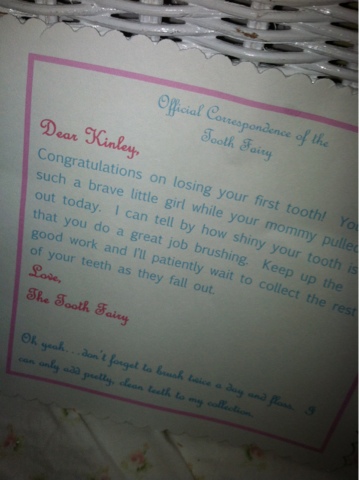 Official Correspondence of the
Tooth Fairy
Dear Kinley,
Congratulations on losing your first tooth! You
such a brave little girl while your mommy pulled
out today. I can tell by how shiny your tooth is
that you do a great job brushing. Keep up the
good work and I'll patiently wait to collect the rest
of your teeth as they fall out.
Love,
The Tooth Fairy
Oh yeah...don't forget to brush twice a day and floss. I
can only add pretty, clean teeth to my collection.